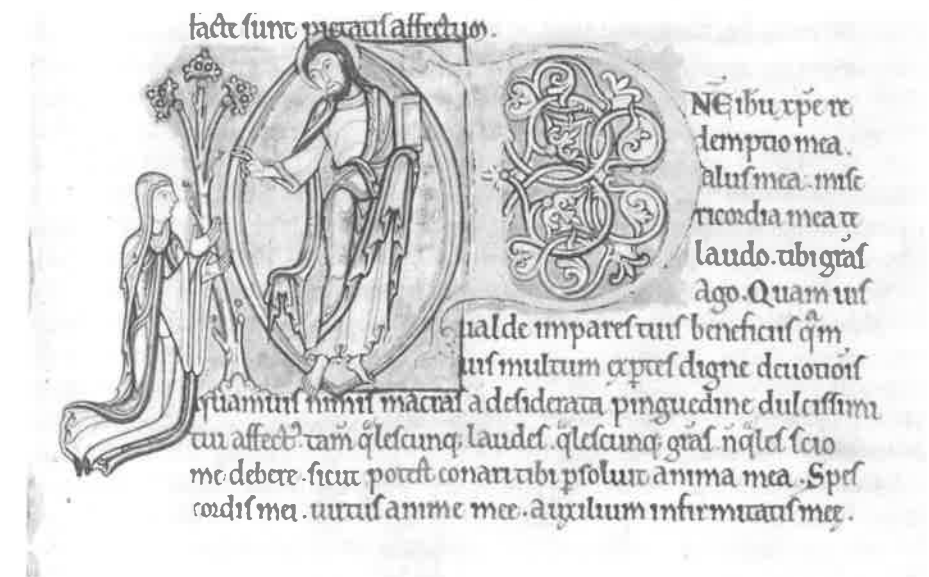 facte sunt pietatis affectum.
D
NE ihu xp̄e re
demptio mea.
salus mea. mise
ricordia mea te
laudo. tibi gr̄as
ago. Quam uis
ualde impares tuis beneficiis q̄m
uis multum exp̄tes digne deuotiōis
quamuis nimis macras a desiderata pinguedine dulcissimi
tui affectꝰ. tam q̄lescunq; laudes. q̄lescunq; gr̄as. n̄ q̄les scio
me debere. sicut potest conari tibi p̄soluit anima mea. Spes
cordis mei. uirtus anime mee. auxilium infirmitatis meę.